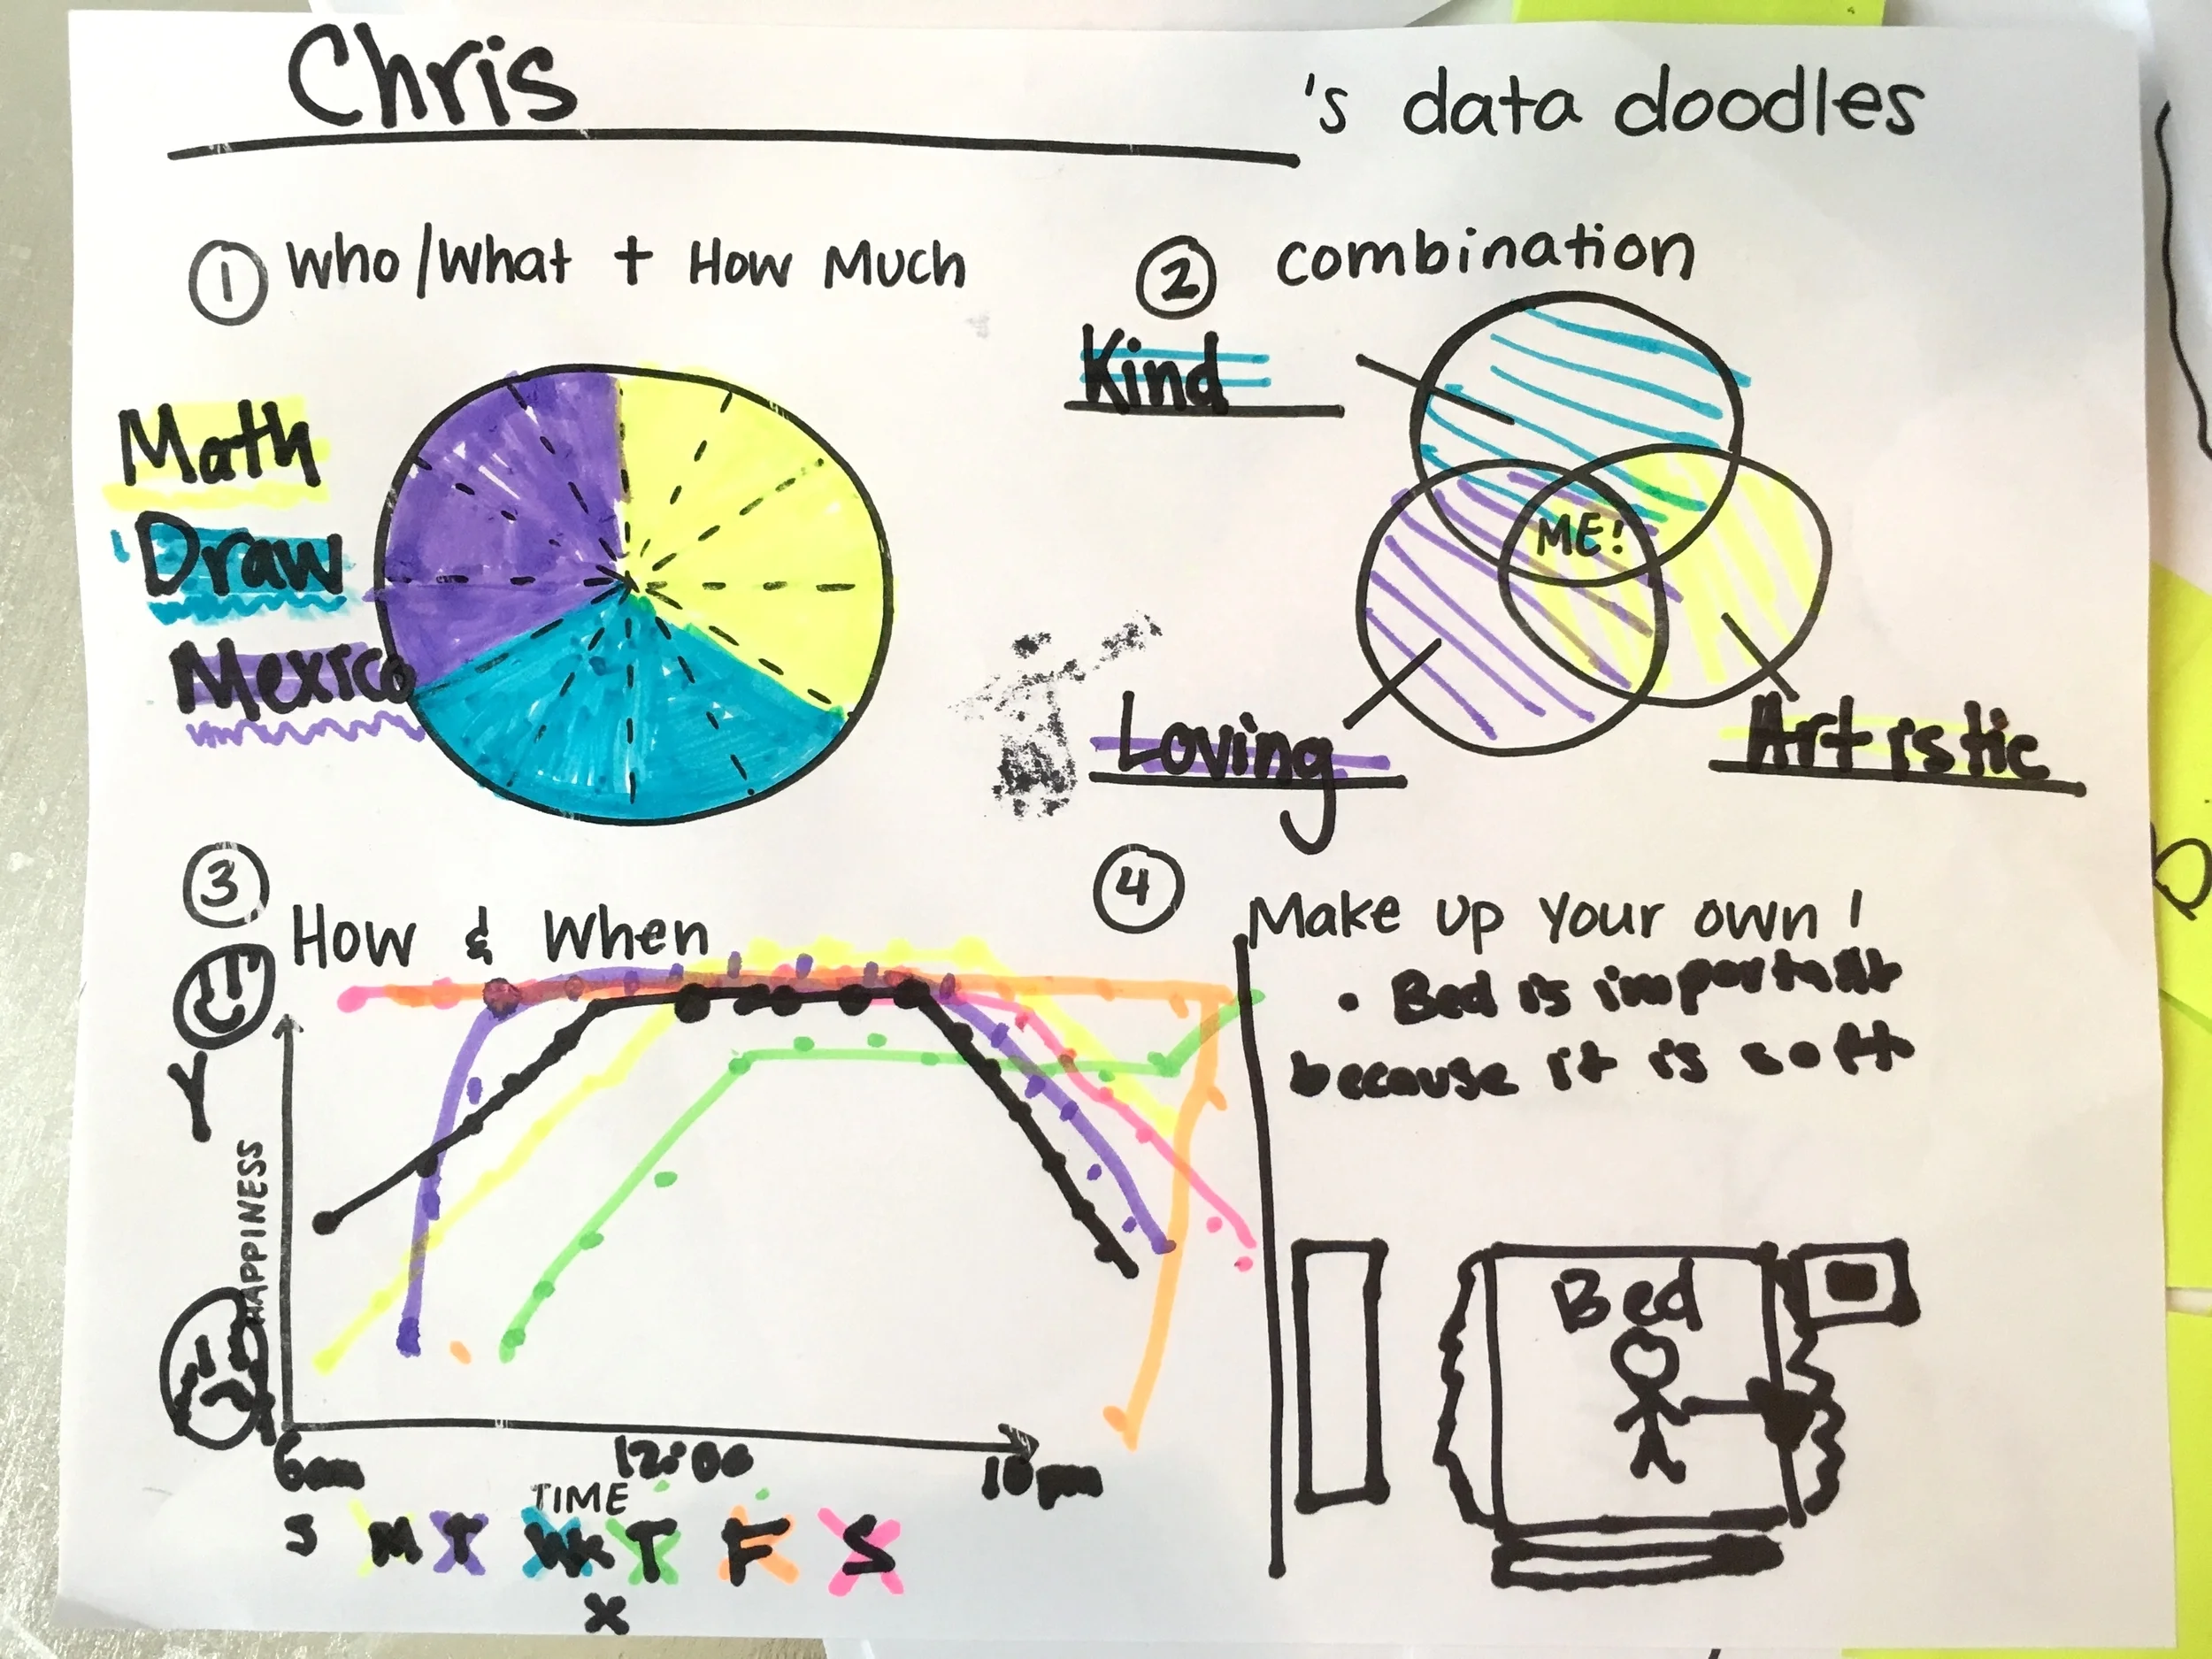 Chris 's data doodles
① Who/What + How Much
Math
Draw
Mexico
② combination
Kind
ME!
Loving
Artistic
③
How & When
Y
HAPPINESS
6am 12:00 10pm
TIME
S M T W T F S
X
④
Make up your own!
• Bed is important
because it is soft
Bed